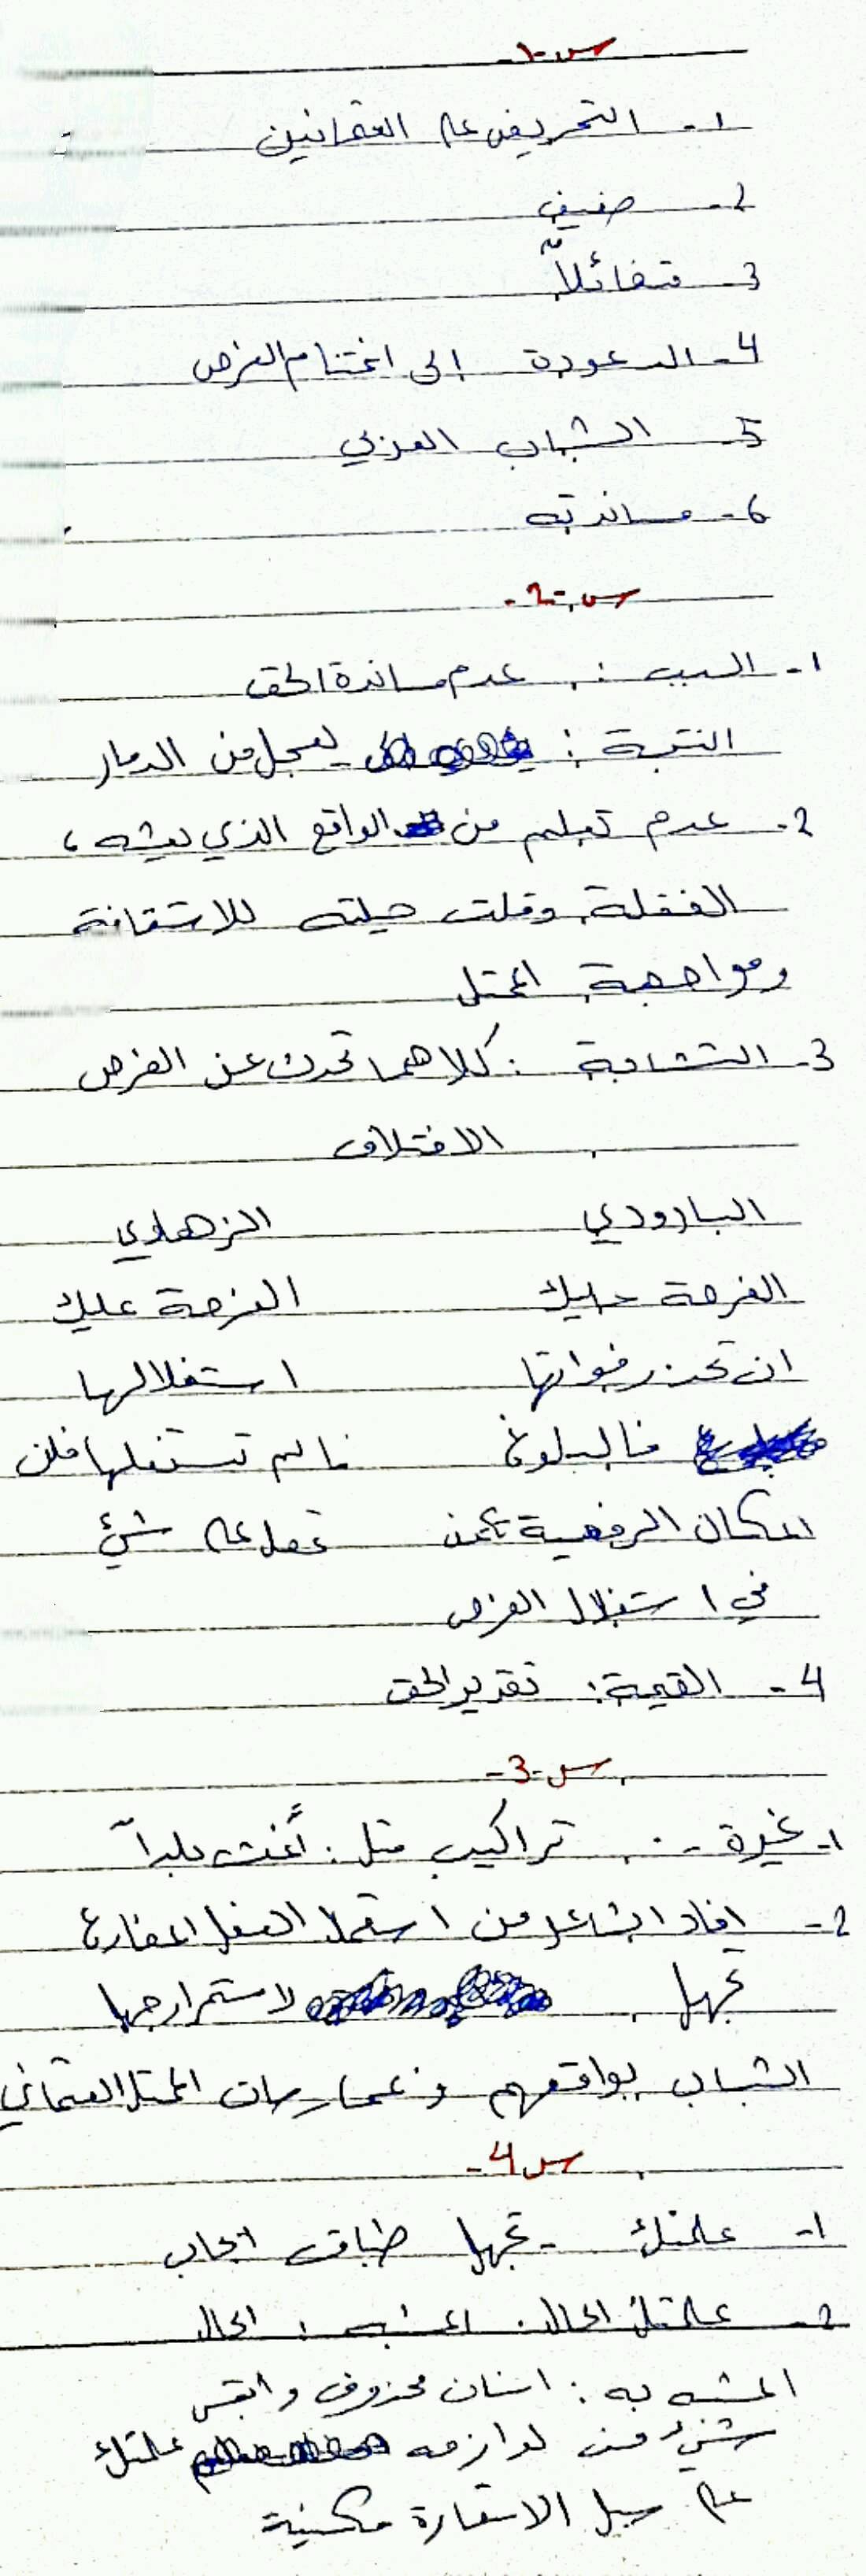 س-1-
1- التحريض على العثمانيين
2- ضعيف
3- متفائلاً
4- الدعودة إلى اغتنام الفرص
5- الشباب العربي
6- مساندته
س-2-
1- السبب : عدم مساندة الحق
النتيجة : يعجل من الدمار
2- عدم تعلمه من الواقع الذي يعيشه ،
الغفلة وقلت حيلته للاستقامة
ومواجهة المحتل
3- التشابة : كلاهما تحدث عن الفرص
الاختلاف
البارودي الزهاوي
الفرصة عليك الفرصة عليك
ان تحذر فواتها استغلالها
فالبلوغ فالم تستغلها فلن
المكان الرفيعة تكمن تحصل على شيء
في استغلال الفرص
4- القيمة : تقدير الحق
س-3-
1- غيرة - تراكيب مثل : أغنت بلداً
2- افاد الشاعر من استعمال الفعل المضارع
تجهل لاستمرار جهل
الشباب بواقعهم وممارسات المحتل العثماني
س4-
1- علمتك - تجهل طباق ايجاب
2- علمتك الحال : المشبه : الحال
المشبه به : انسان محذوف وابقى
شيء من لوازمه علمتك
على سبيل الاستعارة مكنية